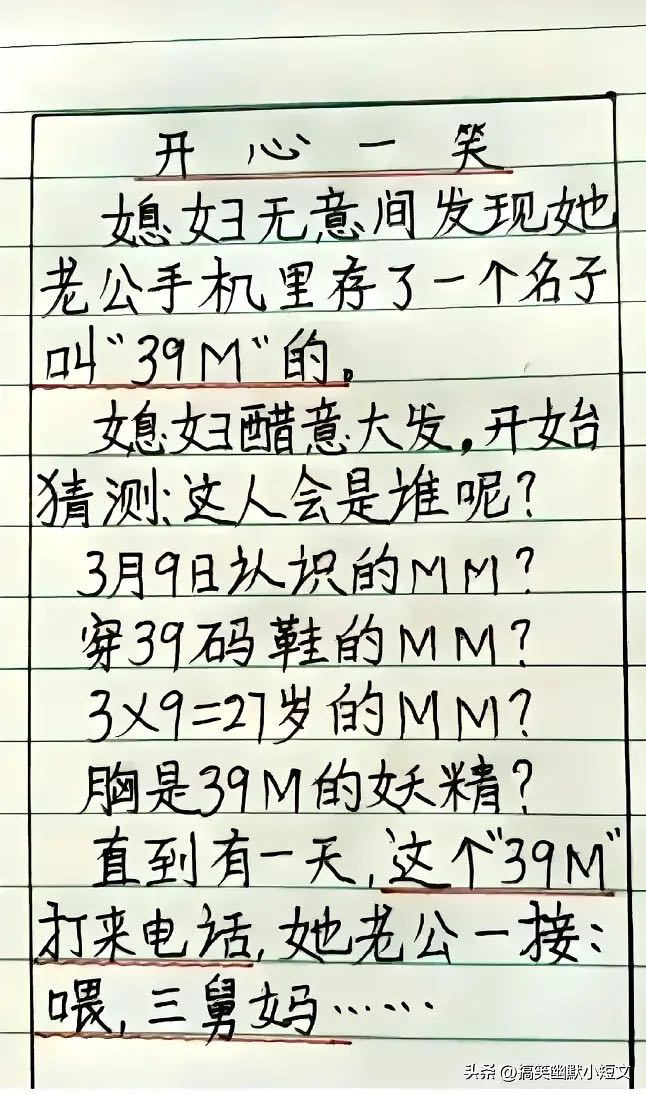 开心一笑
媳妇无意间发现她
老公手机里存了一个名子
叫“39M”的。
媳妇醋意大发,开始
猜测:这人会是谁呢?
3月9日认识的MM?
穿39码鞋的MM?
3×9=27岁的MM?
胸是39M的妖精?
直到有一天,这个“39M”
打来电话,她老公一接:
喂,三舅妈……
头条 @搞笑幽默小短文